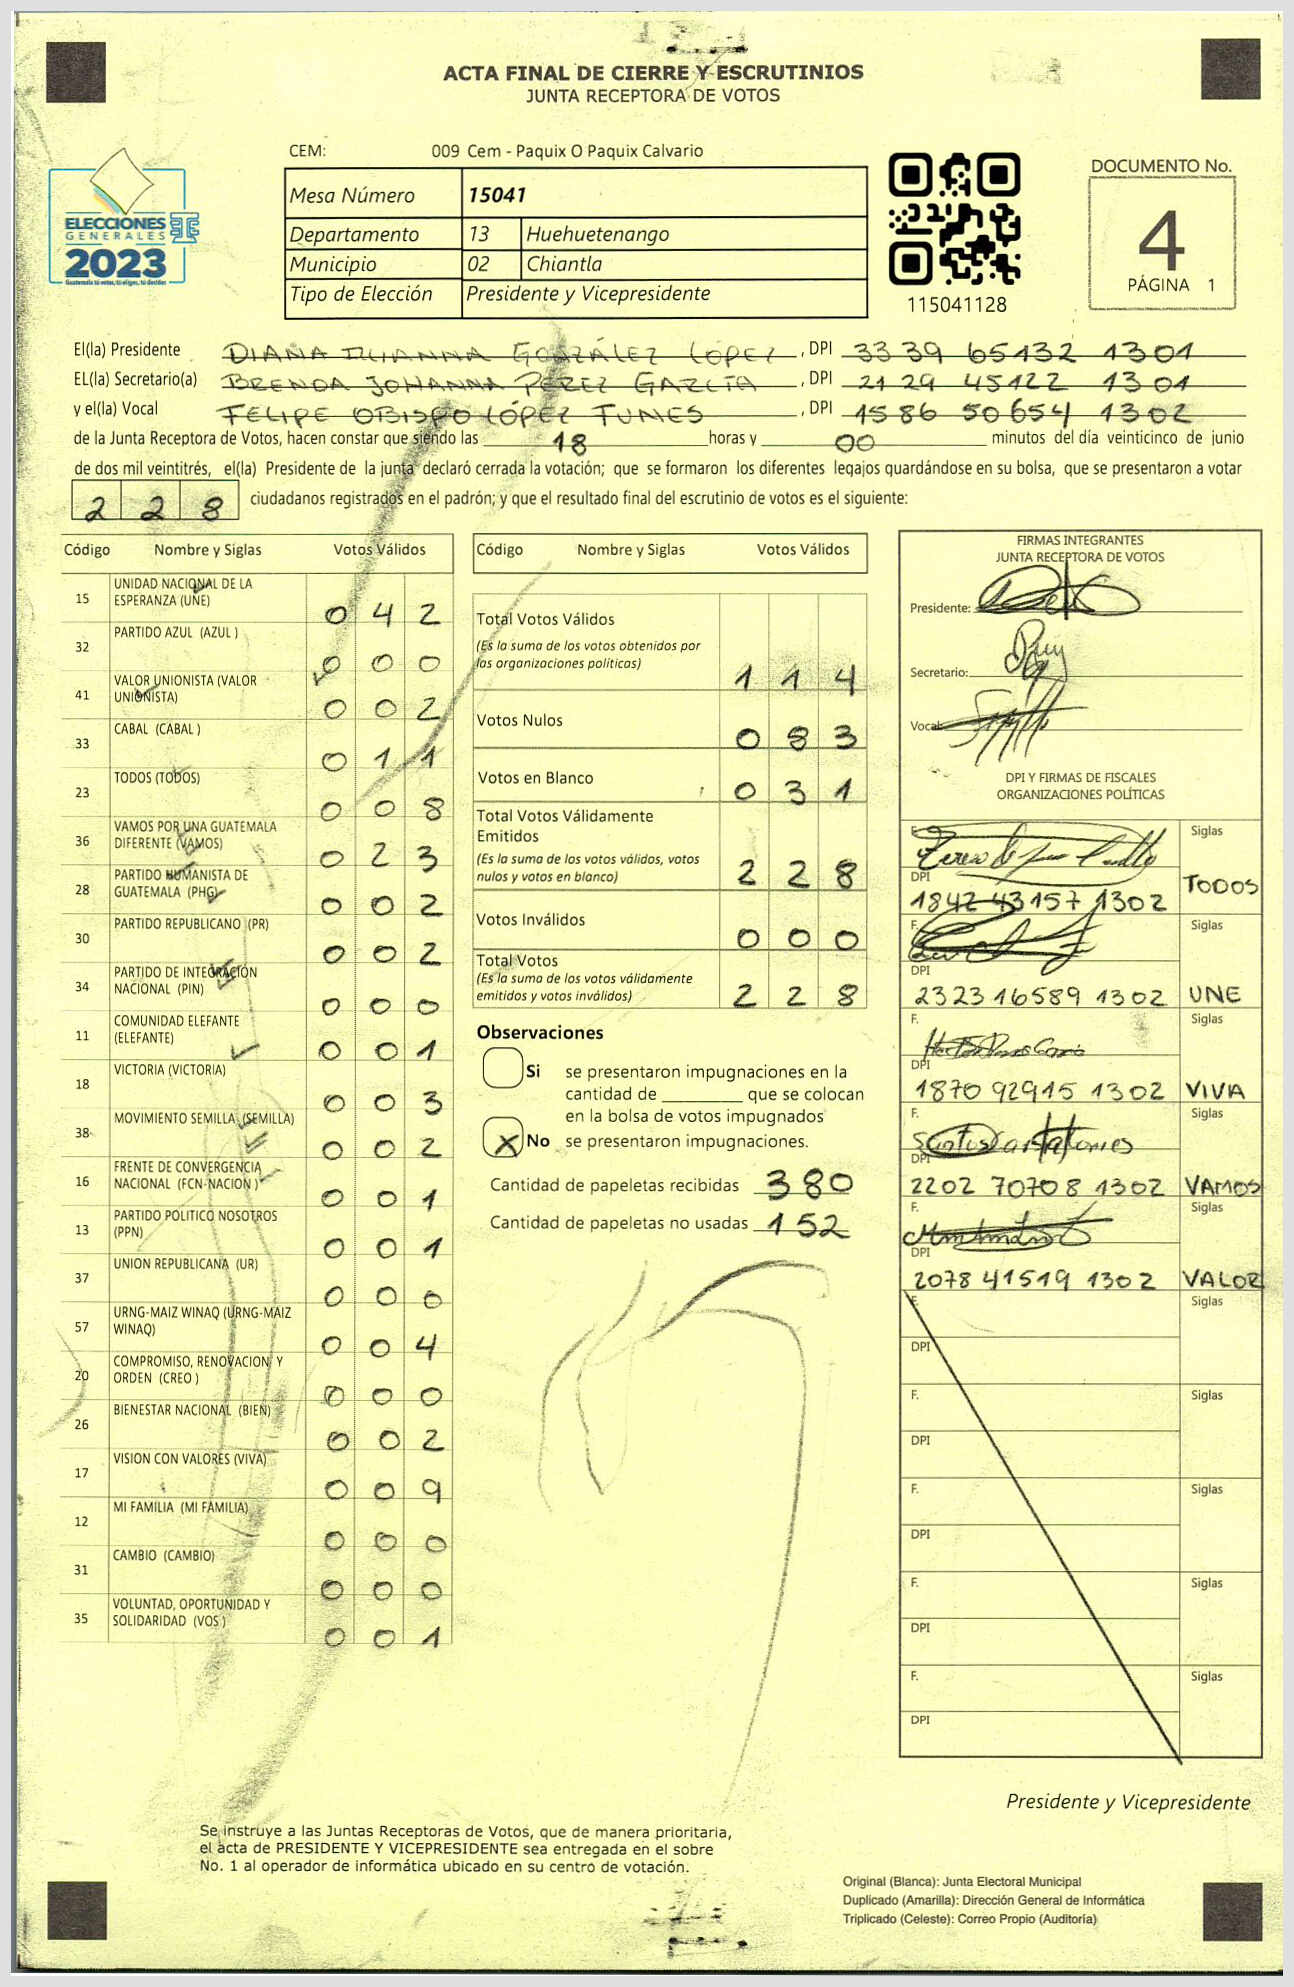 ACTA FINAL DE CIERRE Y ESCRUTINIOS
JUNTA RECEPTORA DE VOTOS
CEM: 009 Cem - Paquix O Paquix Calvario
Mesa Número 15041
Departamento 13 Huehuetenango
Municipio 02 Chiantla
Tipo de Elección Presidente y Vicepresidente
ELECCIONES
GENERALES
2023
Guatemala tú votas, tú eliges, tú decides
115041128
DOCUMENTO No.
4
PÁGINA 1
El(la) Presidente DIANA GONZÁLEZ LÓPEZ, DPI 3339 65132 1301
EL(la) Secretario(a) BRENDA JOHANNA PÉREZ GARCÍA, DPI 2129 45122 1301
y el(la) Vocal FELIPE OBISPO LÓPEZ FUNES, DPI 1586 50654 1302
de la Junta Receptora de Votos, hacen constar que siendo las 18 horas y 00 minutos del día veinticinco de junio
de dos mil veintitrés, el(la) Presidente de la junta declaró cerrada la votación; que se formaron los diferentes legajos guardándose en su bolsa, que se presentaron a votar
228 ciudadanos registrados en el padrón; y que el resultado final del escrutinio de votos es el siguiente:
Código Nombre y Siglas Votos Válidos
15 UNIDAD NACIONAL DE LA
ESPERANZA (UNE) 0 4 2
32 PARTIDO AZUL (AZUL ) 0 0 0
41 VALOR UNIONISTA (VALOR
UNIONISTA) 0 0 2
33 CABAL (CABAL ) 0 1 1
23 TODOS (TODOS) 0 0 8
36 VAMOS POR UNA GUATEMALA
DIFERENTE (VAMOS) 0 2 3
28 PARTIDO HUMANISTA DE
GUATEMALA (PHG) 0 0 2
30 PARTIDO REPUBLICANO (PR) 0 0 2
34 PARTIDO DE INTEGRACION
NACIONAL (PIN) 0 0 0
11 COMUNIDAD ELEFANTE
(ELEFANTE) 0 0 1
18 VICTORIA (VICTORIA) 0 0 3
38 MOVIMIENTO SEMILLA (SEMILLA) 0 0 2
16 FRENTE DE CONVERGENCIA
NACIONAL (FCN-NACION ) 0 0 1
13 PARTIDO POLITICO NOSOTROS
(PPN) 0 0 1
37 UNION REPUBLICANA (UR) 0 0 0
57 URNG-MAIZ WINAQ (URNG-MAIZ
WINAQ) 0 0 4
20 COMPROMISO, RENOVACION Y
ORDEN (CREO ) 0 0 0
26 BIENESTAR NACIONAL (BIEN) 0 0 2
17 VISION CON VALORES (VIVA) 0 0 9
12 MI FAMILIA (MI FAMILIA) 0 0 0
31 CAMBIO (CAMBIO) 0 0 0
35 VOLUNTAD, OPORTUNIDAD Y
SOLIDARIDAD (VOS ) 0 0 1
Código Nombre y Siglas Votos Válidos
Total Votos Válidos
(Es la suma de los votos obtenidos por
las organizaciones políticas) 1 1 4
Votos Nulos 0 8 3
Votos en Blanco 0 3 1
Total Votos Válidamente
Emitidos
(Es la suma de los votos válidos, votos
nulos y votos en blanco) 2 2 8
Votos Inválidos 0 0 0
Total Votos
(Es la suma de los votos válidamente
emitidos y votos inválidos) 2 2 8
Observaciones
Si se presentaron impugnaciones en la
cantidad de ________ que se colocan
en la bolsa de votos impugnados
X No se presentaron impugnaciones.
Cantidad de papeletas recibidas 380
Cantidad de papeletas no usadas 152
FIRMAS INTEGRANTES
JUNTA RECEPTORA DE VOTOS
Presidente:
Secretario:
Vocal:
DPI Y FIRMAS DE FISCALES
ORGANIZACIONES POLÍTICAS
F. Siglas
DPI 1842 43157 1302 TODOS
F. Siglas
DPI 2323 16589 1302 UNE
F. Siglas
DPI 1870 92915 1302 VIVA
F. Siglas
DPI 2202 70708 1302 VAMOS
F. Siglas
DPI 2078 41519 1302 VALOR
F. Siglas
DPI
F. Siglas
DPI
F. Siglas
DPI
F. Siglas
DPI
F. Siglas
DPI
Presidente y Vicepresidente
Se instruye a las Juntas Receptoras de Votos, que de manera prioritaria,
el acta de PRESIDENTE Y VICEPRESIDENTE sea entregada en el sobre
No. 1 al operador de informática ubicado en su centro de votación.
Original (Blanca): Junta Electoral Municipal
Duplicado (Amarilla): Dirección General de Informática
Triplicado (Celeste): Correo Propio (Auditoría)